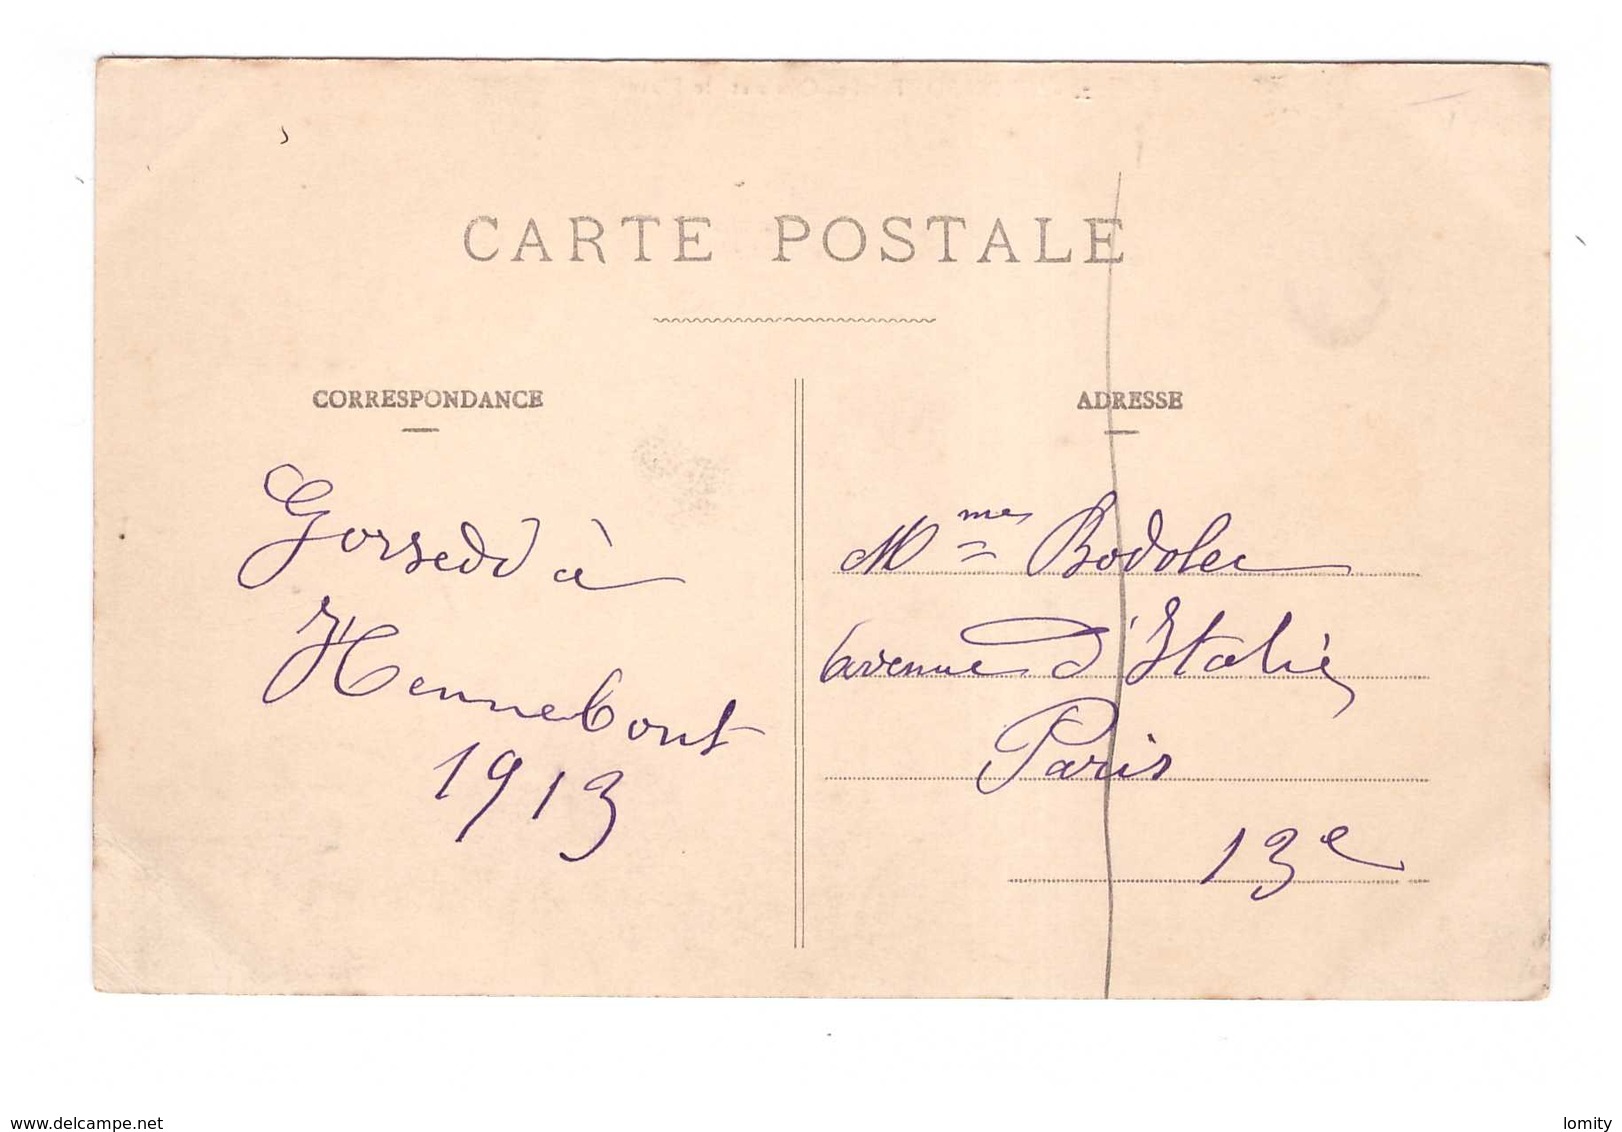 CARTE POSTALE
CORRESPONDANCE
Gorsedd à
Hennebont
1913
ADRESSE
Mmes Bodolec
6 avenue d'Italie
Paris
13e
www.delcampe.net
lomity